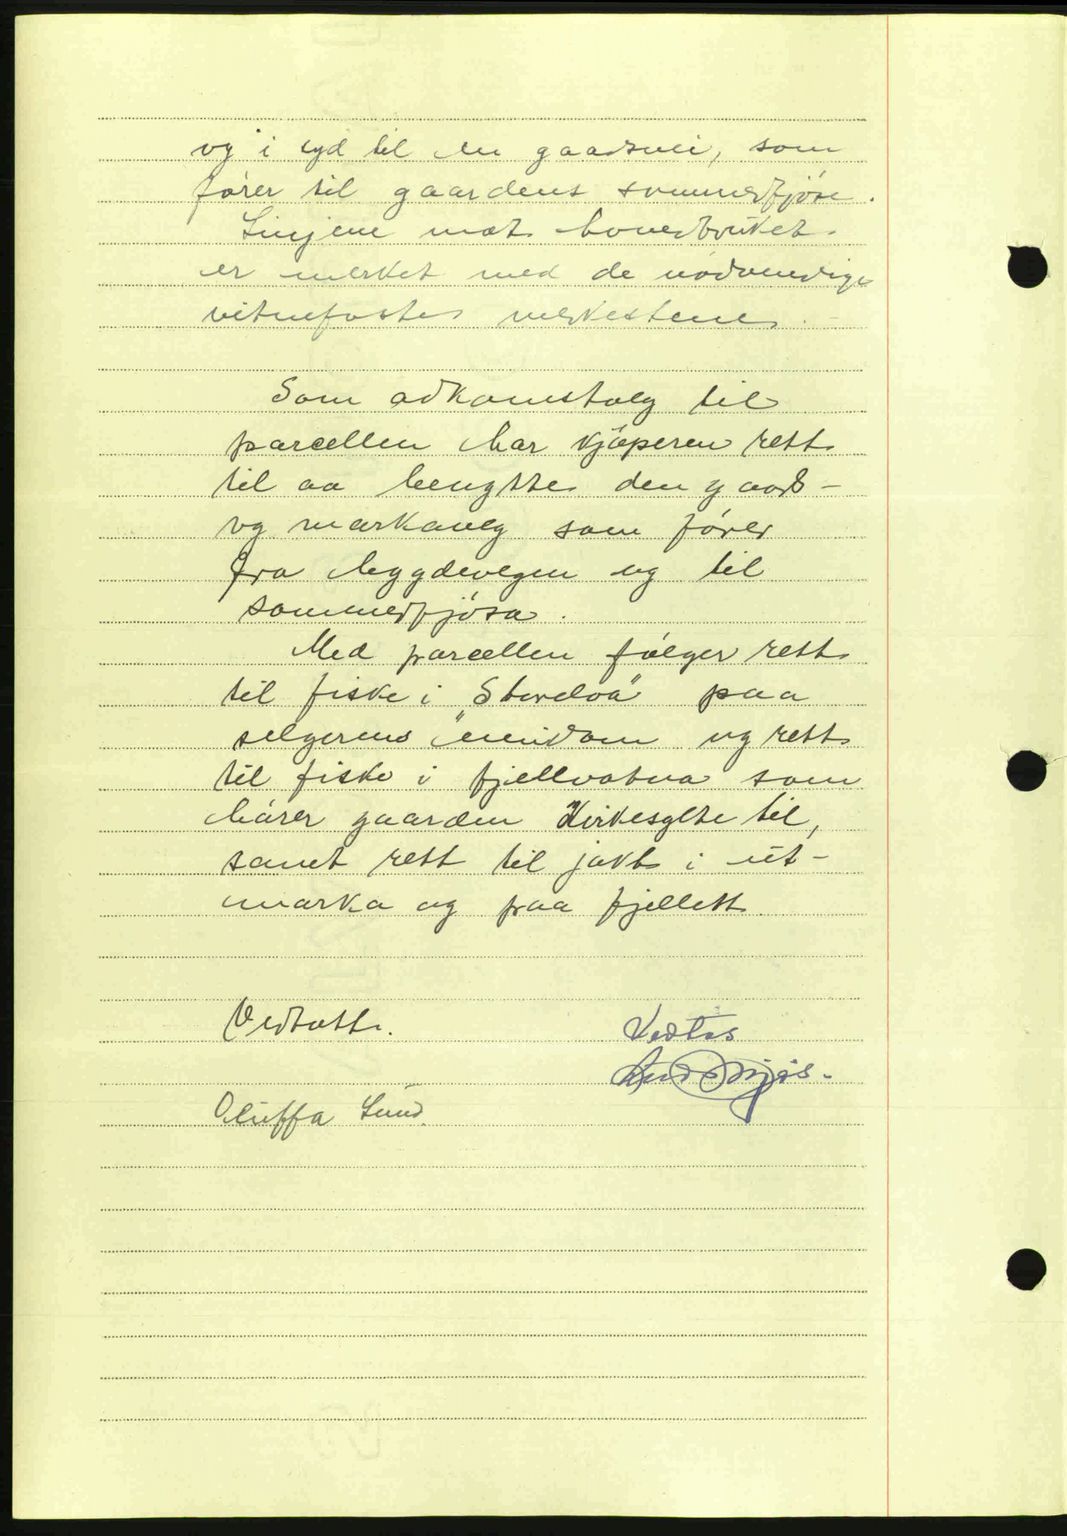 og i syd til en gaardsvei, som
fører til gaardens sommerfjøs.
Linjene mot hovedbruket
er merket med de nødvendige
vitnefaste merkestene.
Som adkomstveg til
parcellen har kjøperen rett
til aa benytte den gaards-
og markaveg som fører
fra bygdevegen og til
sommerfjøsa.
Med parcellen følger rett
til fiske i "Storelva" paa
selgerens eiendom og rett
til fiske i fjellvatna som
hører gaarden Kirkesylte til,
samt rett til jakt i ut-
marka og paa fjellett.
Vedtatt. Vedtas
Oluffa Lund.